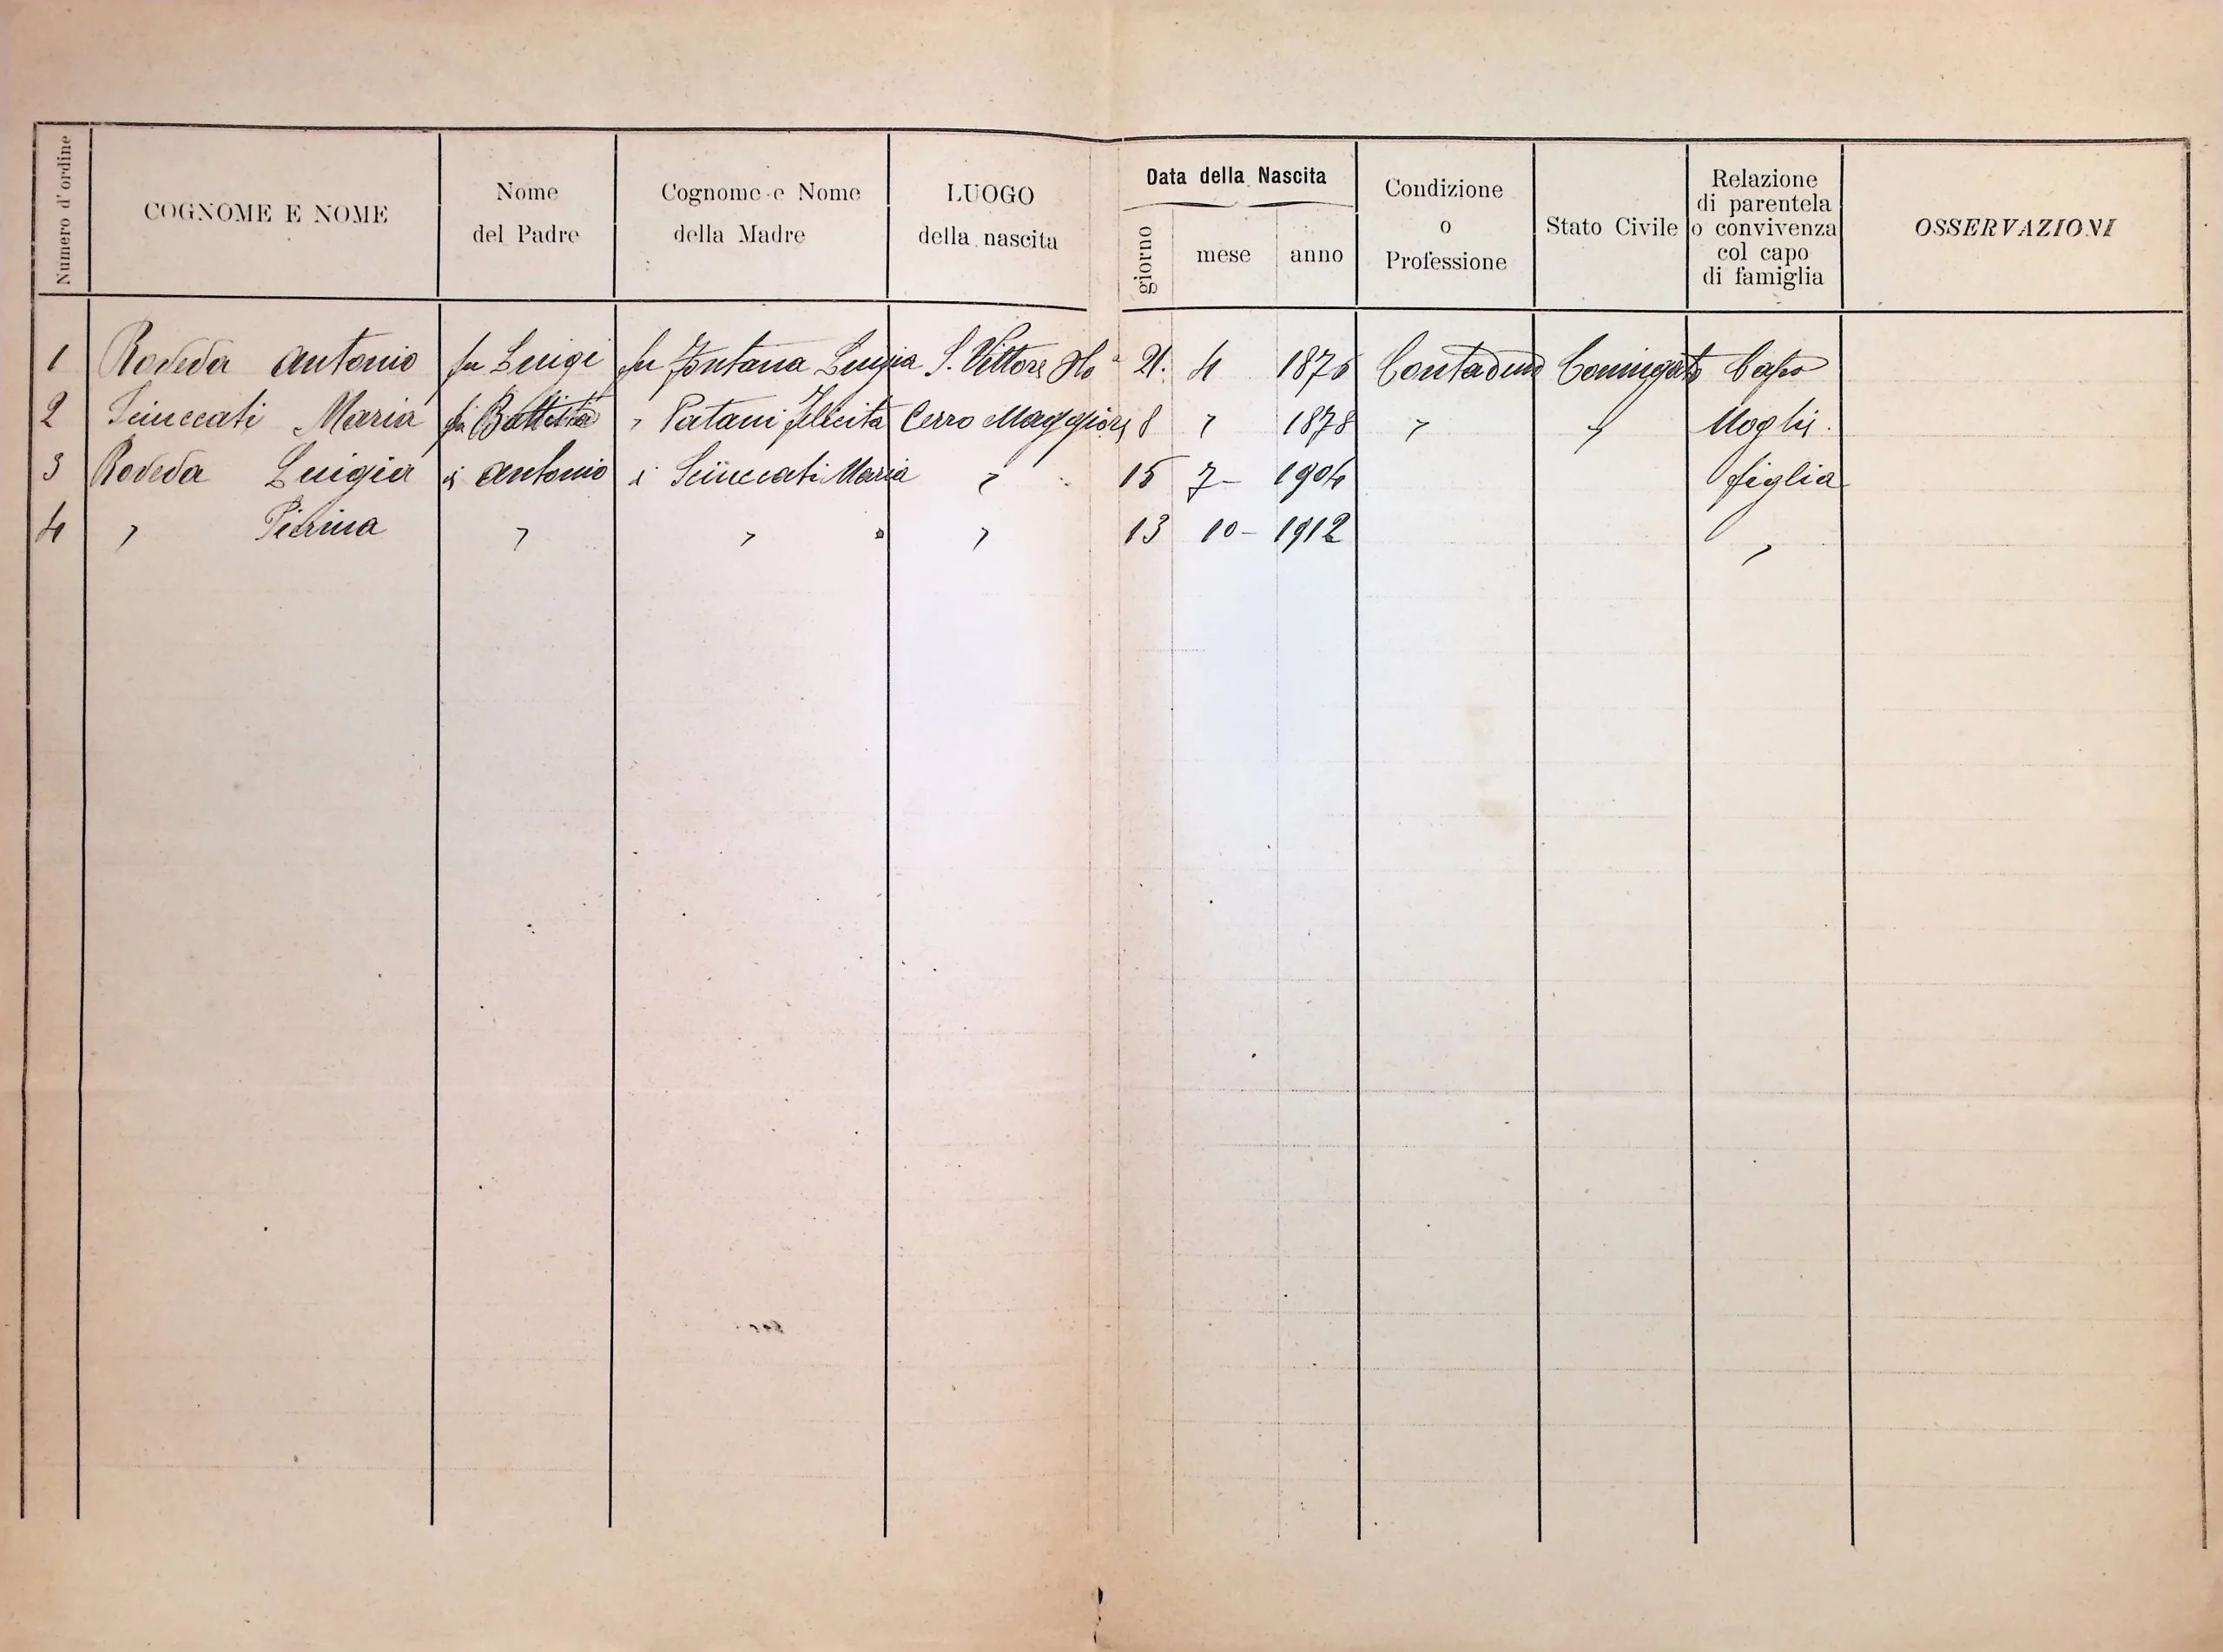 Numero d'ordine
COGNOME E NOME
Nome
del Padre
Cognome e Nome
della Madre
LUOGO
della nascita
Data della Nascita
giorno
mese
anno
Condizione
o
Professione
Stato Civile
Relazione
di parentela
o convivenza
col capo
di famiglia
OSSERVAZIONI
1 Roveda Antonio fu Luigi fu Fontana Luigia S. Vittore Olo 21. 4 1876 Contadino Coniugato Capo
2 Maria fu Battista " Felicita Cerro Maggiore 8 " 1878 " " Moglie.
3 Roveda Luigia di Antonio di Maria " 15 7- 1904 figlia
4 " Pierina " " " " 13 10- 1912 "